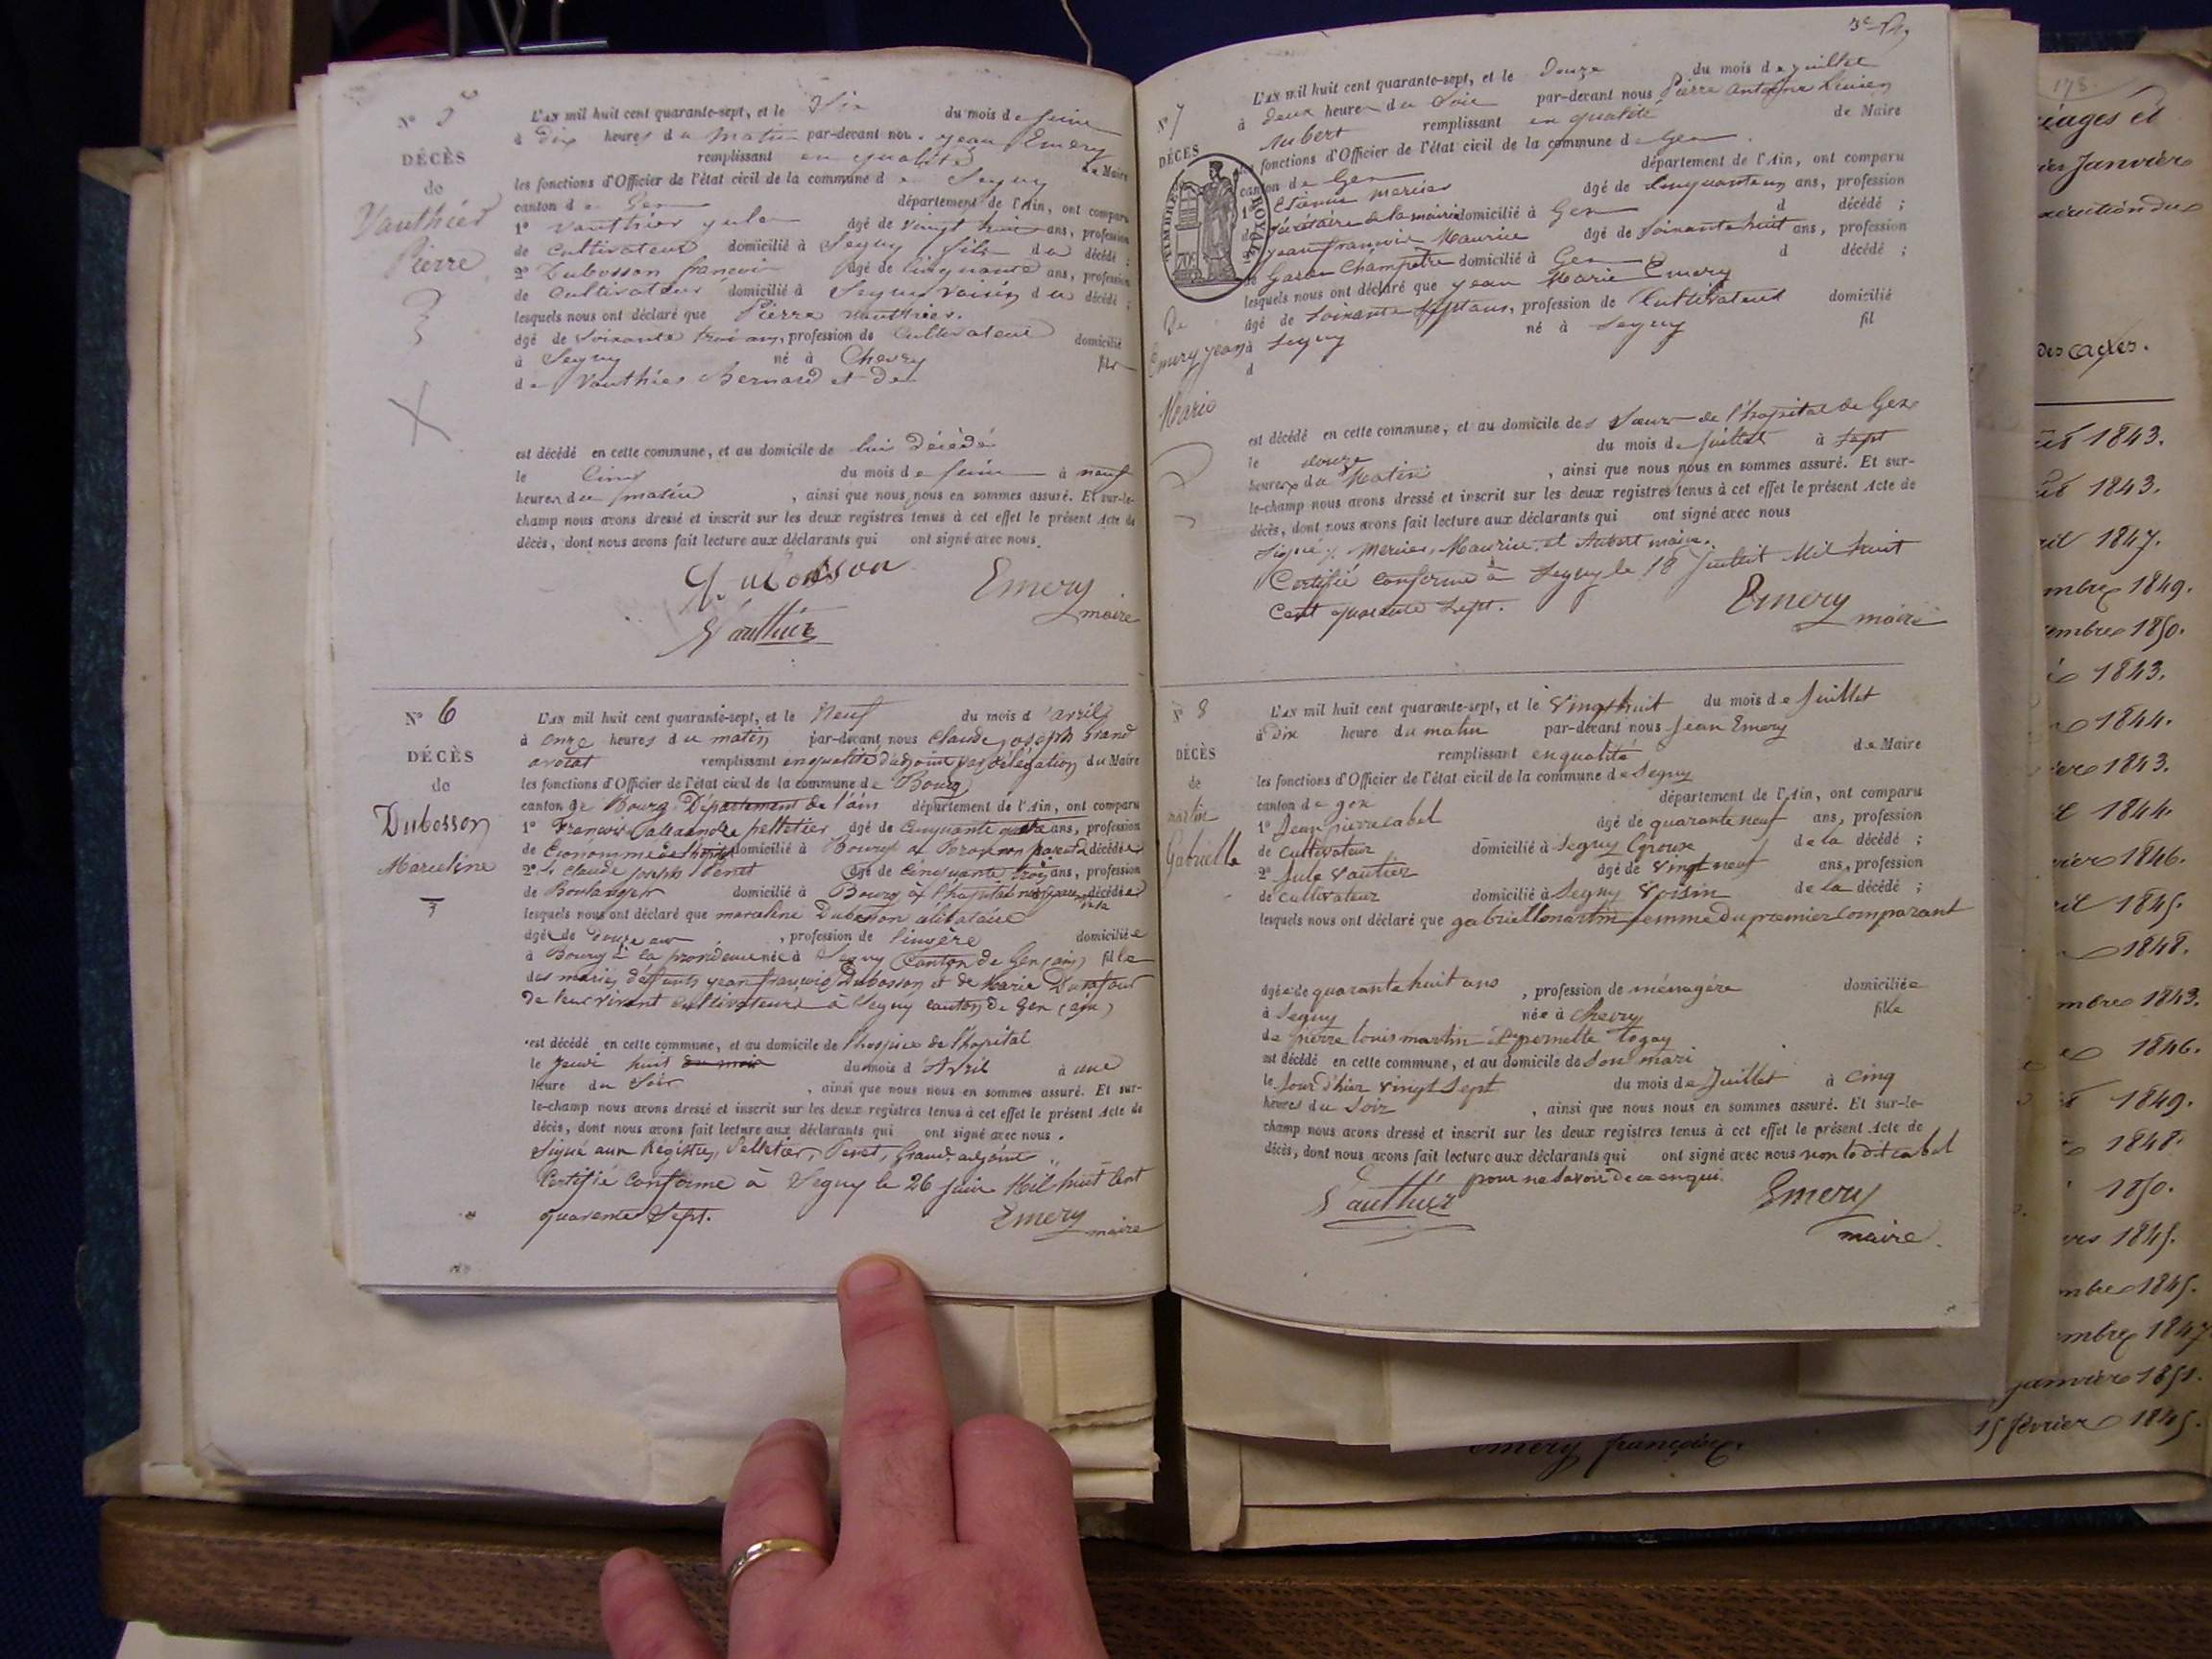 N° 5
DÉCÈS
de
Vauthier
Pierre
L'AN mil huit cent quarante-sept, et le Six du mois de juin
à Dix heures du matin par-devant nous jean Emery
remplissant en qualité de Maire
les fonctions d'Officier de l'état civil de la commune de Segny
canton de Gex département de l'Ain, ont comparu
1° Vauthier jule âgé de vingt huit ans, profession
de Cultivateur domicilié à Segny fils du décédé ;
2° Dubosson francois âgé de Cinquante ans, profession
de Cultivateur domicilié à Segny voisin du décédé ;
lesquels nous ont déclaré que Pierre vauthier.
âgé de soixante trois ans, profession de Cultivateur domicilié
à Segny né à Chevry fils
de Vauthier Bernard et de
est décédé en cette commune, et au domicile de lui décédé
le Cinq du mois de juin à neuf
heures du matin, ainsi que nous nous en sommes assuré. Et sur-le-
champ nous avons dressé et inscrit sur les deux registres tenus à cet effet le présent Acte de
décès, dont nous avons fait lecture aux déclarants qui ont signé avec nous.
Dubosson
Emery
maire
Vauthier
N° 6
DÉCÈS
de
Dubosson
Marceline
L'AN mil huit cent quarante-sept, et le Neuf du mois d'avril
à onze heures du matin par-devant nous Claude joseph Grand
avocat remplissant en qualité d'adjoint par délégation du Maire
les fonctions d'Officier de l'état civil de la commune de Bourg
canton de Bourg Département de l'ain département de l'Ain, ont comparu
1° François alexandre pelletier âgé de Cinquante quatre ans, profession
de Économe domicilié à Bourg non parent décédée
2° Claude joseph Penet âgé de cinquante trois ans, profession
de Boulanger domicilié à Bourg à l'hopital décédée
lesquels nous ont déclaré que marceline Dubosson célibataire
âgée de Douze ans, profession de lingère domiciliée
à Bourg à la providence née à Segny Canton de Gex (ain) fille
des mariés défunts jean françois Dubosson et de Marie Dufour
de leur vivant cultivateurs à Segny canton de Gex (ain)
est décédé en cette commune, et au domicile de l'hospice de l'hopital
le jeudi huit du mois du mois d'Avril à une
heure du Soir, ainsi que nous nous en sommes assuré. Et sur-
le-champ nous avons dressé et inscrit sur les deux registres tenus à cet effet le présent Acte de
décès, dont nous avons fait lecture aux déclarants qui ont signé avec nous.
Signé aux Régistres, Pelletier, Penet, Grand adjoint
Certifié Conforme à Segny le 26 juin Mil huit Cent
quarente Sept.
Emery
maire
N° 7
DÉCÈS
De
Emery jean
Marie
TIMBRE ROYAL
L'AN mil huit cent quarante-sept, et le Douze du mois de juillet
à deux heures du Soir par-devant nous Pierre antoine Lucien
Aubert remplissant en qualité de Maire
les fonctions d'Officier de l'état civil de la commune de Gex
canton de Gex département de l'Ain, ont comparu
1° Etienne Mercier âgé de Cinquante un ans, profession
de Sécrétaire de la mairie domicilié à Gex d décédé ;
jean françois Maurice âgé de Soixante huit ans, profession
de Garde Champêtre domicilié à Gex d décédé ;
lesquels nous ont déclaré que jean Marie Emery
âgé de Soixante Sept ans, profession de Cultivateur domicilié
à Segny né à Segny fil
d
est décédé en cette commune, et au domicile des Sœurs de l'hopital de Gex
le douze du mois de Juillet à Sept
heures du Matin, ainsi que nous nous en sommes assuré. Et sur-
le-champ nous avons dressé et inscrit sur les deux registres tenus à cet effet le présent Acte de
décès, dont nous avons fait lecture aux déclarants qui ont signé avec nous
Signé Mercier, Maurice, et Aubert maire.
Certifié Conforme à Segny le 18 Juillet Mil huit
Cent quarente Sept.
Emery
maire
N° 8
DÉCÈS
de
martin
Gabrielle
L'AN mil huit cent quarante-sept, et le vingt huit du mois de Juillet
à Dix heure du matin par-devant nous Jean Emery
remplissant en qualité de Maire
les fonctions d'Officier de l'état civil de la commune de Segny
canton de gex département de l'Ain, ont comparu
1° Jean pierre cabel âgé de quarante neuf ans, profession
de cultivateur domicilié à Segny Epoux de la décédé ;
2° Jule Vautier âgé de vingt neuf ans, profession
de cultivateur domicilié à Segny Voisin de la décédé ;
lesquels nous ont déclaré que gabrielle martin femme du premier Comparant
âgée de quarante huit ans, profession de ménagère domiciliée
à Segny née à chevry fille
de pierre louis martin et pernette
est décédé en cette commune, et au domicile de Son mari
le Jour d'hier vingt Sept du mois de Juillet à Cinq
heures du Soir, ainsi que nous nous en sommes assuré. Et sur-le-
champ nous avons dressé et inscrit sur les deux registres tenus à cet effet le présent Acte de
décès, dont nous avons fait lecture aux déclarants qui ont signé avec nous non ledit cabel
pour ne Savoir de ce enqui
Vauthier
Emery
maire.
178.
iages et
Janvier
des actes.
1843.
1843.
1847.
mbre 1849.
embre 1850.
1843.
1844.
1843.
1844.
1846.
1845.
1848.
mbre 1843.
1846.
1849.
1848.
1850.
1845.
mbre 1845.
mbre 1847
janvier 1851.
15 février 1845.
emery françoise.